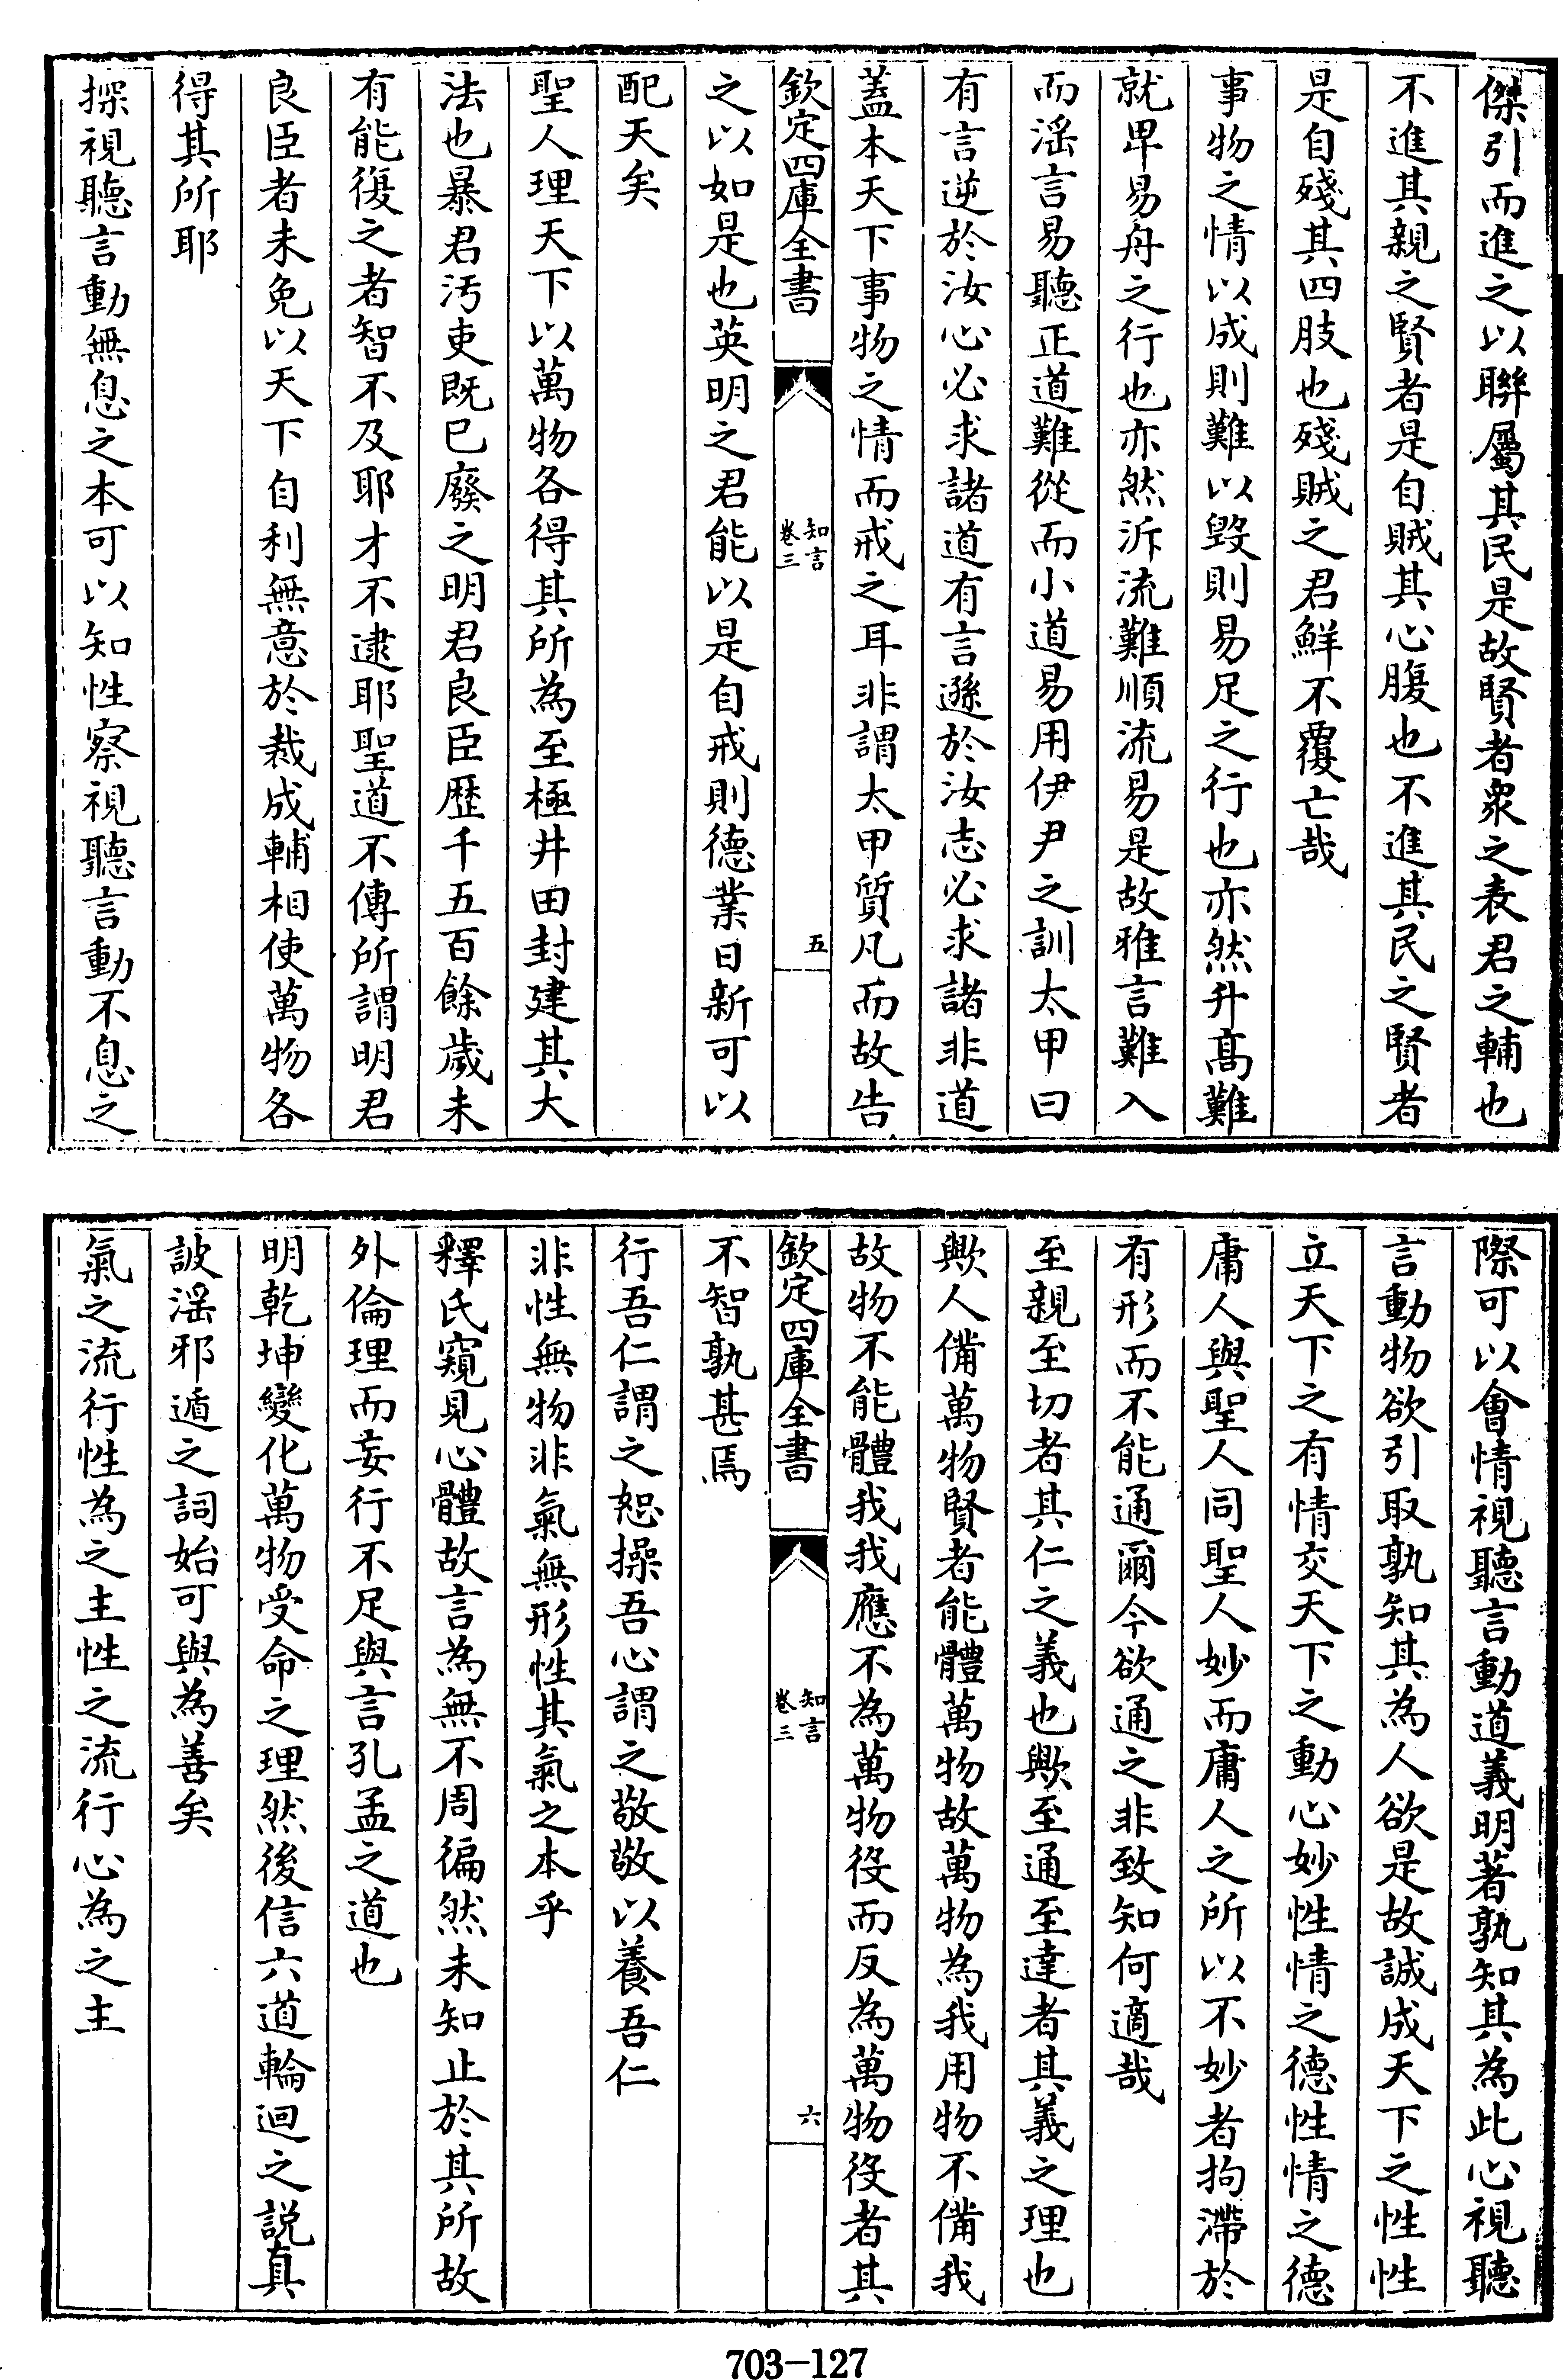 傑引而進之以聯屬其民是故賢者衆之表君之輔也
不進其親之賢者是自賊其心腹也不進其民之賢者
是自殘其四肢也殘賊之君鮮不覆亡哉
事物之情以成則難以毀則易足之行也亦然升髙難
就卑易舟之行也亦然泝流難順流易是故雅言難入
而淫言易聽正道難從而小道易用伊尹之訓太甲曰
有言逆於汝心必求諸道有言遜於汝志必求諸非道
蓋本天下事物之情而戒之耳非謂太甲質凡而故告
欽定四庫全書
知言
卷三
五
之以如是也英明之君能以是自戒則德業日新可以
配天矣
聖人理天下以萬物各得其所為至極井田封建其大
法也暴君汚吏既已廢之明君良臣歴千五百餘歲未
有能復之者智不及耶才不逮耶聖道不傳所謂明君
良臣者未免以天下自利無意於裁成輔相使萬物各
得其所耶
探視聽言動無息之本可以知性察視聽言動不息之
際可以會情視聽言動道義明著孰知其為此心視聽
言動物欲引取孰知其為人欲是故誠成天下之性性
立天下之有情交天下之動心妙性情之德性情之德
庸人與聖人同聖人妙而庸人之所以不妙者拘滯於
有形而不能通爾今欲通之非致知何適哉
至親至切者其仁之義也歟至通至達者其義之理也
歟人備萬物賢者能體萬物故萬物為我用物不備我
故物不能體我我應不為萬物役而反為萬物役者其
欽定四庫全書
知言
卷三
六
不智孰甚焉
行吾仁謂之恕操吾心謂之敬敬以養吾仁
非性無物非氣無形性其氣之本乎
釋氏窺見心體故言為無不周徧然未知止於其所故
外倫理而妄行不足與言孔孟之道也
明乾坤變化萬物受命之理然後信六道輪迴之說真
詖淫邪遁之詞始可與為善矣
氣之流行性為之主性之流行心為之主
703-127